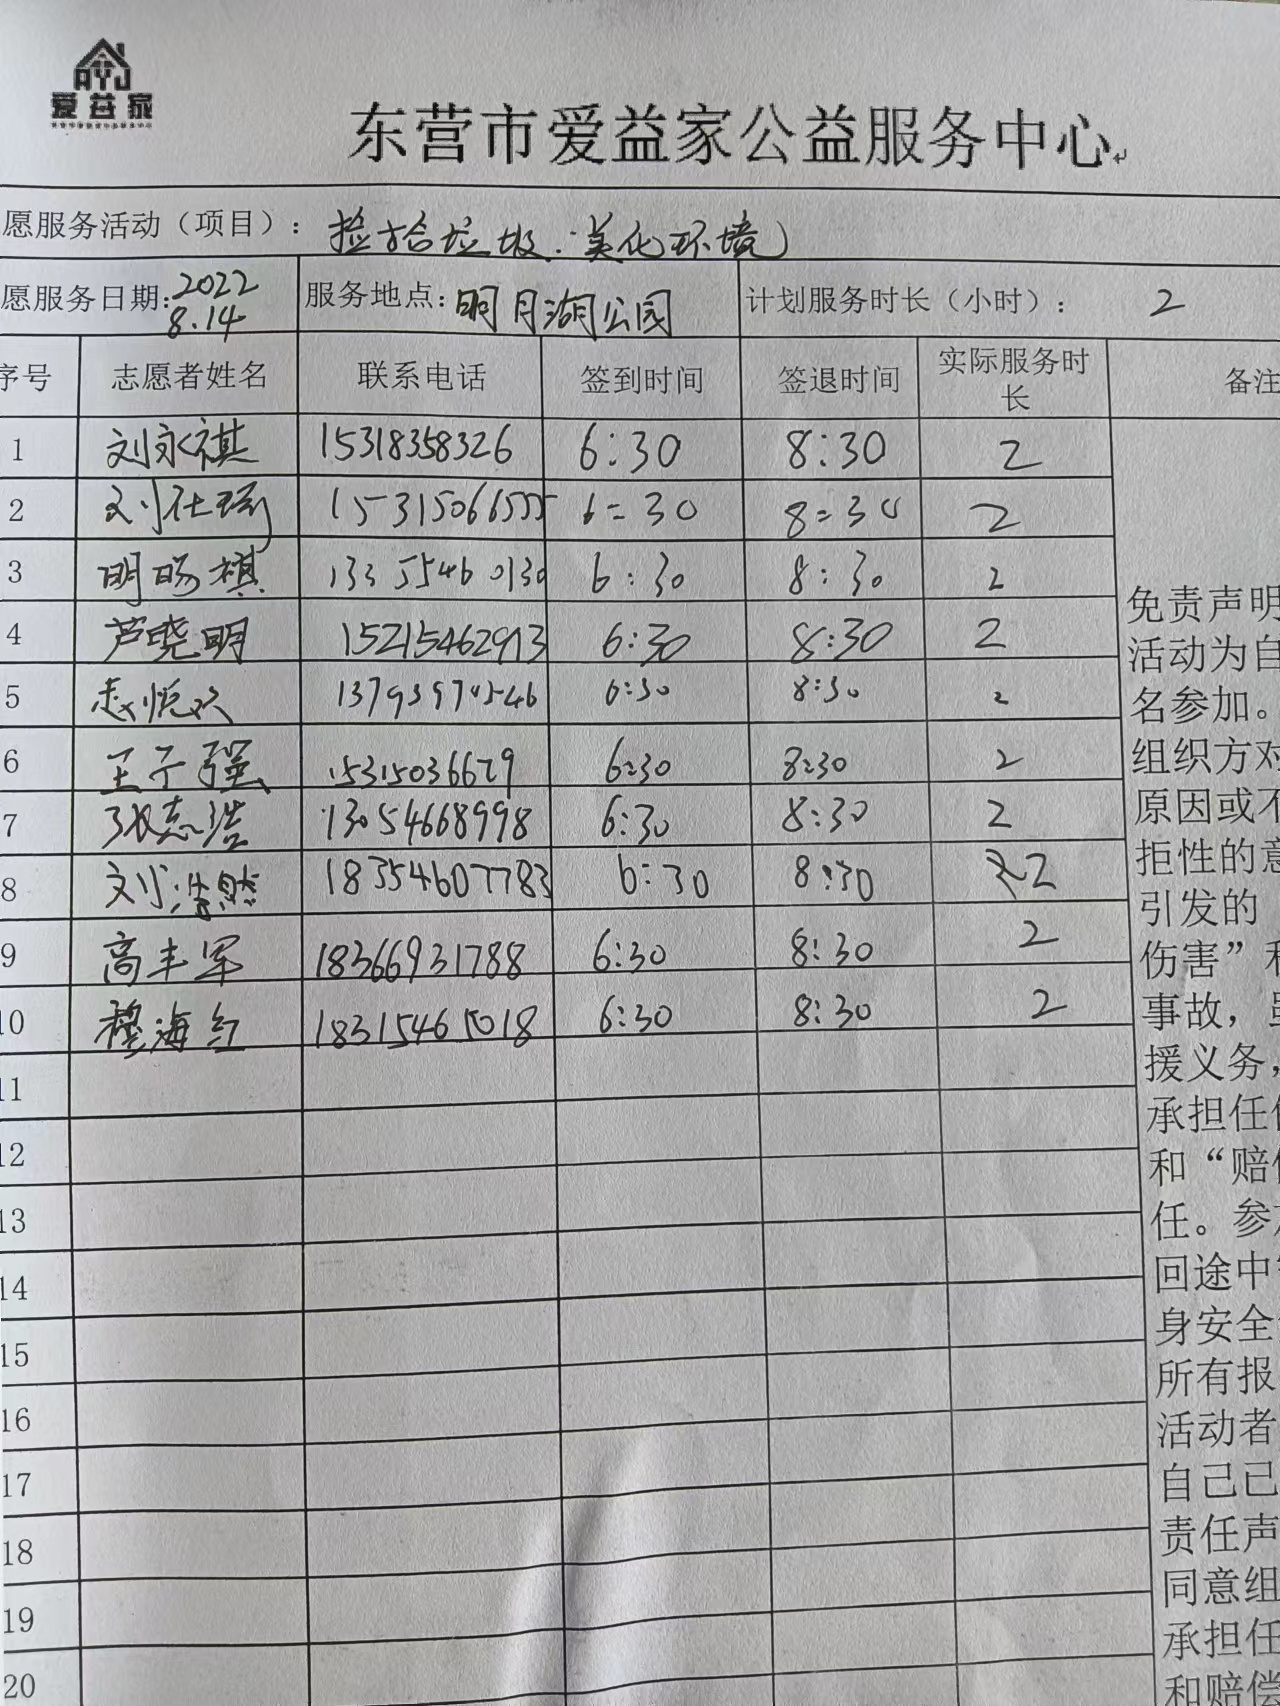 AYJ
爱益家
东营市爱益家公益服务中心
愿服务活动（项目）： 捡拾垃圾.美化环境
愿服务日期: 2022 8.14 服务地点: 明月湖公园 计划服务时长（小时）： 2
序号 志愿者姓名 联系电话 签到时间 签退时间 实际服务时长 备注
1 刘永祺 15318358326 6:30 8:30 2
2 15315066555 6:30 8:30 2
3 明旸祺 13355460130 6:30 8:30 2
4 芦晓明 15215462913 6:30 8:30 2
5 6:30 8:30 2
6 王子强 15315036679 6:30 8:30 2
7 张志浩 13054668998 6:30 8:30 2
8 刘浩然 18354607783 6:30 8:30 2
9 高丰军 18366931788 6:30 8:30 2
10 穆海红 18315461018 6:30 8:30 2
11
12
13
14
15
16
17
18
19
20
免责声明
活动为自
名参加。
组织方对
原因或不
拒性的意
引发的
伤害”和
事故，虽
援义务，
承担任何
和“赔偿
任。参加
回途中
身安全
所有报
活动者
自己已
责任声
同意组
承担任
和赔偿